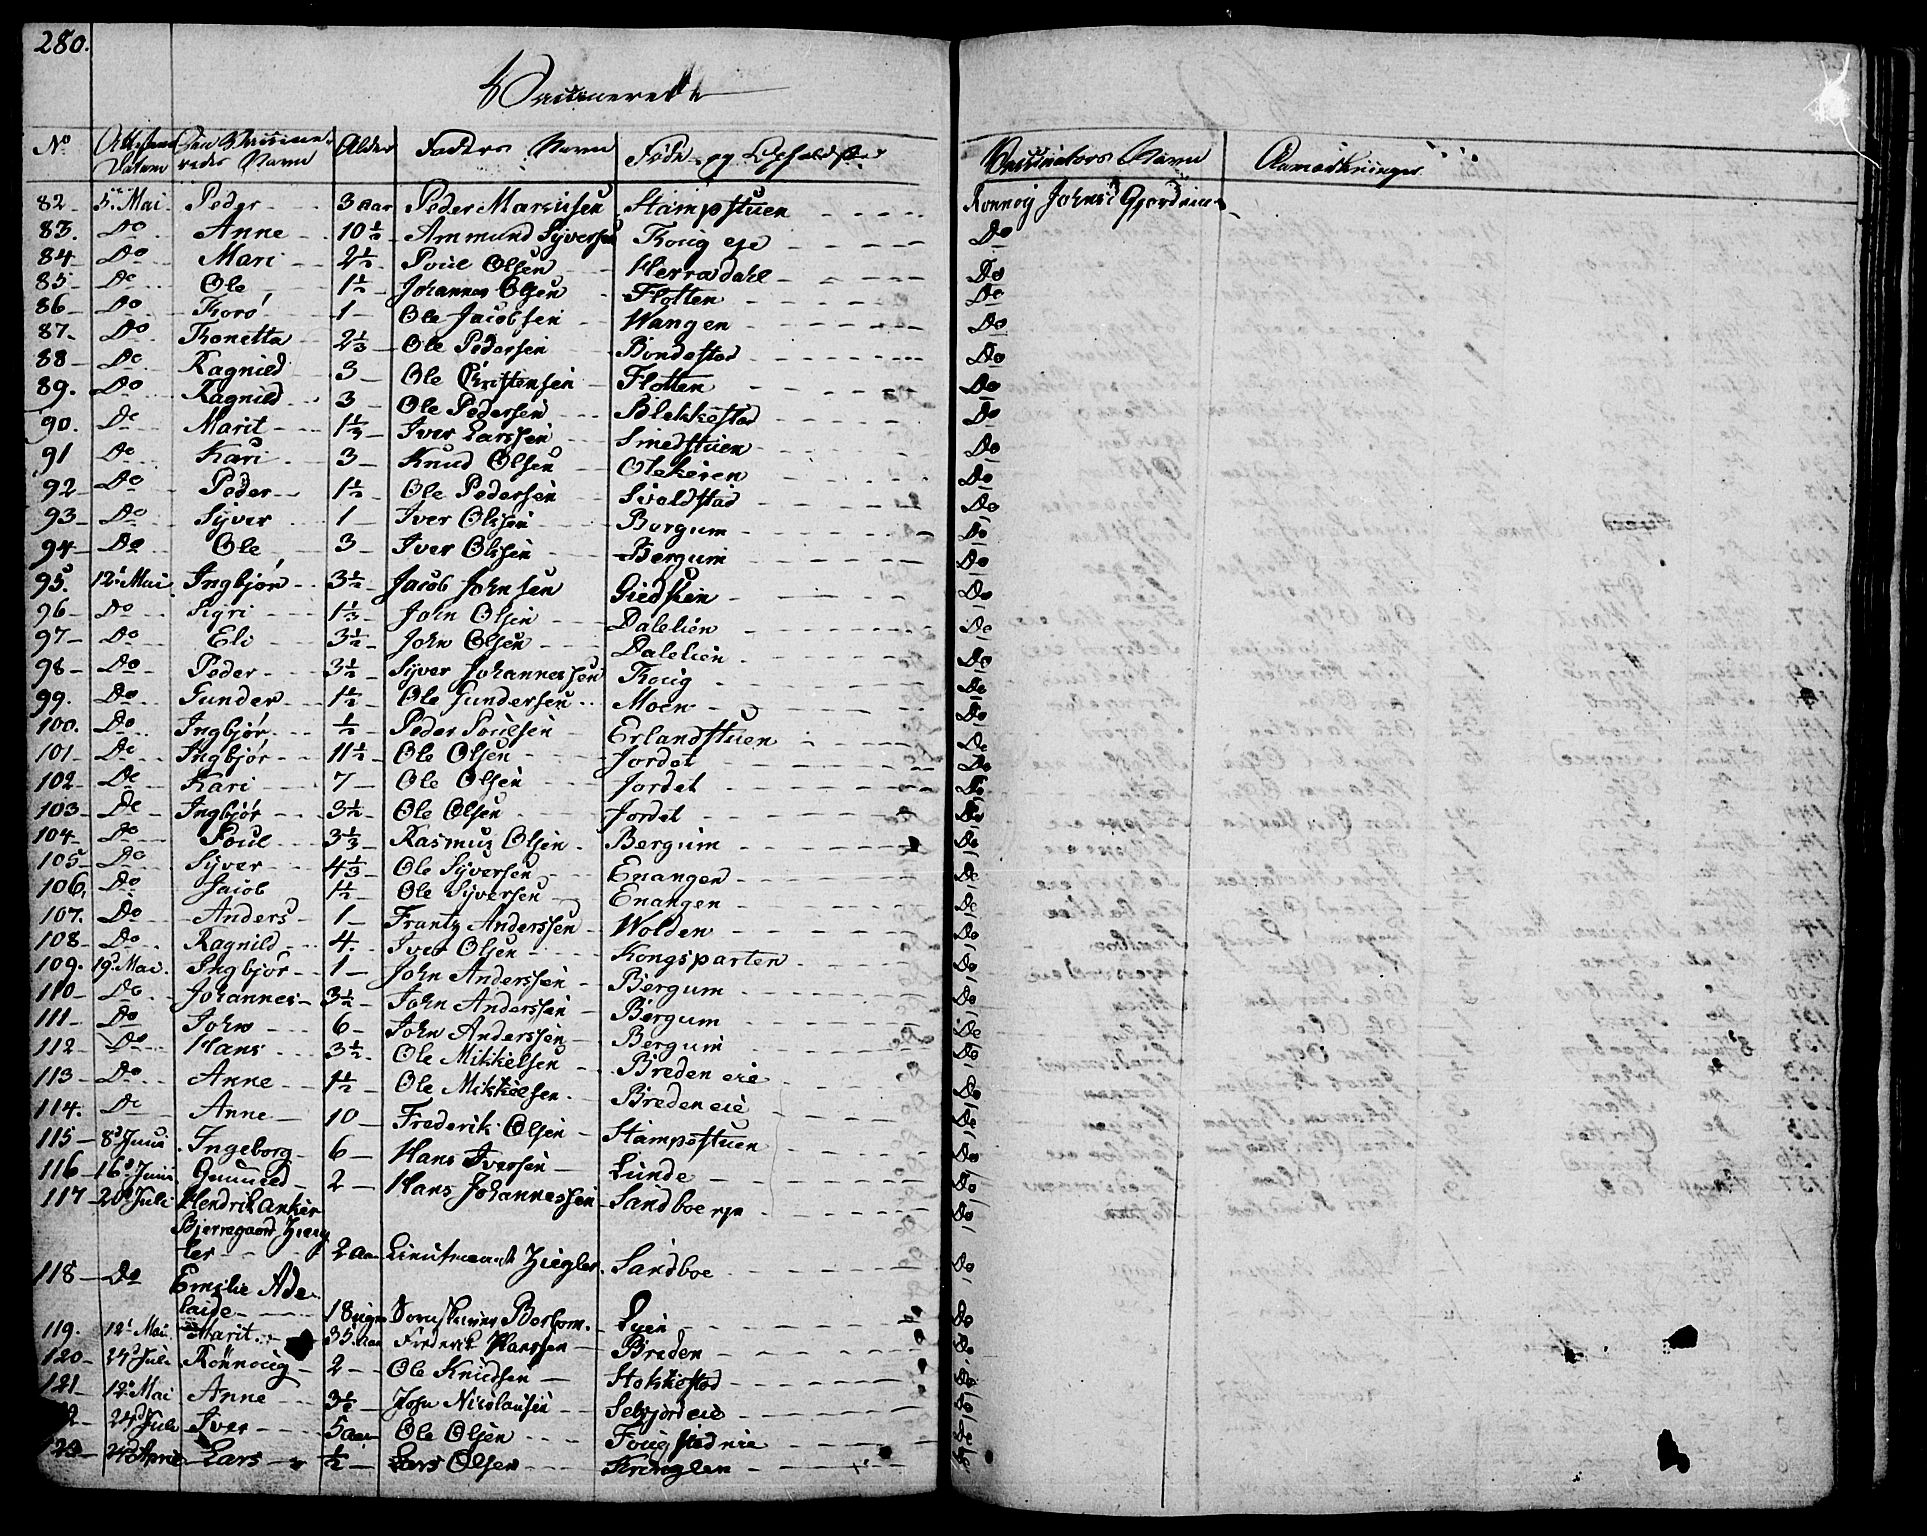 280.
Vaccinerede
No Attestens Datum Den Vaccineredes Navn Alder Faders Navn Føde- og Opholdsted Vaccinators Navn Anmærkninger
82 5. Mai Peder 3 aar Peder Marcusen Stampstuen Ronnog Johnsd Gjordnie
83. Do Anne 10 1/2 Ammund Syversen Tong eje Do
84 Do Mari 2 1/2 Poul Olsen Herradahl Do
85 Do Ole 1 1/2 Johannes Olsen Flotten Do
86 Do Torø 1 Ole Jacobsen Wangen Do
87. Do Tonetta 2 1/3 Ole Pedersen Bondestad Do
88 Do Ragnild 3 Ole Christensen Flotten Do
89. Do Ragnild 3 Ole Pedersen Blekkestad Do
90. Do Marit 1 1/3 Iver Larssen Smedstuen Do
91 Do Kari 3 Knud Olsen Olekeren Do
92 Do Peder 1 1/2 Ole Pedersen Sivoldstad Do
93 Do Syver 1 Iver Olssen Bergum Do
94 Do Ole 3 Iver Olssen Bergum Do
95. 12. Mai Ingbjør 3 1/2 Jacob Johnsen Giedsken Do
96 Do Sigri 1 1/3 John Olsen Dalelien Do
97 Do Eli 3 1/2 John Olsen Dalelien Do
98 Do Peder 3 1/2 Syver Johannessen Tong Do
99. Do Gunder 1 1/2 Ole Gundersen Moen Do
100. Do Ingbjør 1/2 Peder Poulsen Erlandstuen Do
101 Do Ingbjør 11 1/2 Ole Olsen Jordet Do
102 Do Kari 7 Ole Olsen Jordet Do
103 Do Ingbjør 3 1/2 Ole Olsen Jordet Do
104 Do Poul 3 1/3 Rasmus Olsen Bergum Do
105 Do Syver 4 1/3 Ole Syversen Enangen Do
106, Do Jacob 1 1/2 Ole Syversen Enangen Do
107. Do Anders 1 Frantz Anderssen Wolden Do
108 Do Ragnild 4. Iver Olsen Kongsparten Do
109. 19. Mai. Ingbjør 1 John Anderssen Bergum Do
110 Do Johannes 3 1/2 John Anderssen Bergum Do
111 Do John 6 John Anderssen Bergum Do
112 Do Hans 3 1/2 Ole Mikkelsen Breden eie Do
113 Do Anne 1 1/2 Ole Mikkelsen Breden eie Do
114. Do Anne 10 Frederik Olsen Stampestuen Do
115 8d Juni Ingeborg 6 Hans Iversen Lunde Do
116 16d Juni 2 Hans Johannessen Sandboe Do
117 20d Juli Hendrik Anker
Bjerregaard Zieg
ler 2 aar Lieutnant Ziegler Sandboe Do
118 Do Emilie Ade
laide 18 Do
119. 12. Mai Marit 35. aar Frederik Hanssen Breden Do
120 24d Juli Rønnoug 2 Ole Knudsen Stokkestad Do
121 12. Mai Anne John Nicolausen Selsjord eie Do
24d Juli Iver 5 aar Ole Olsen Fougstad eie Do
123 24d April Lars 1/2 Lars Olsen Kringlen Do